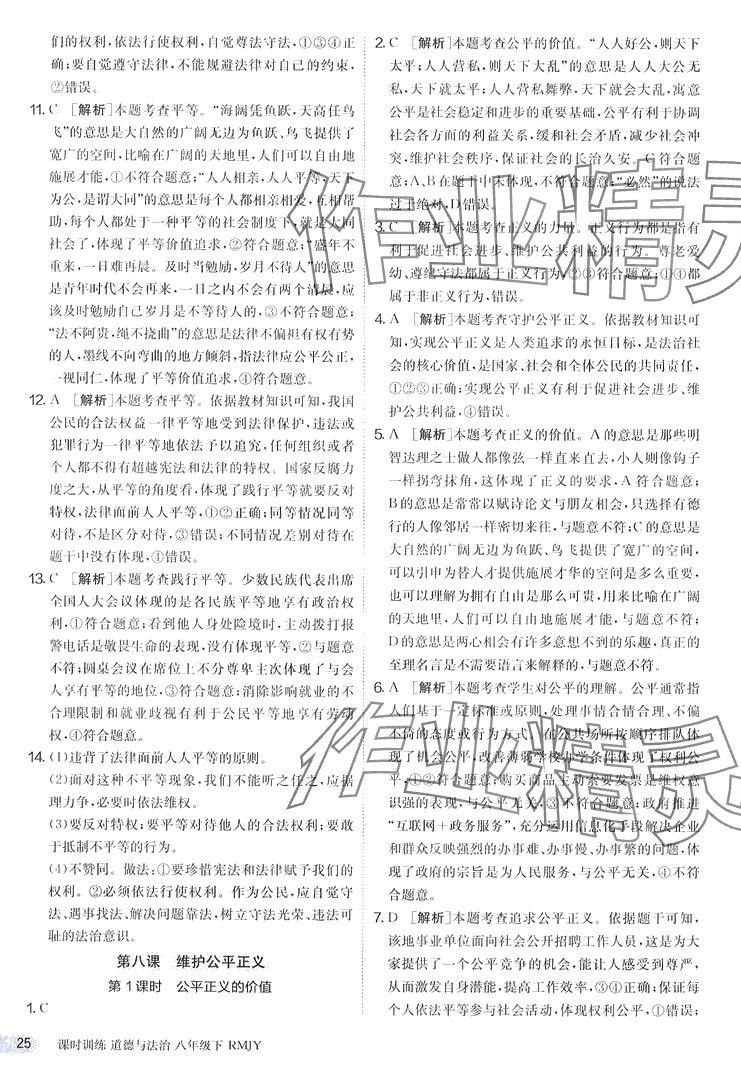 们的权利，依法行使权利，自觉尊法守法，①③④正
确；要自觉遵守法律，不能规避法律对自己的约束，
②错误。
11. C　[解析]本题考查平等。“海阔凭鱼跃，天高任鸟
飞”的意思是大自然的广阔无边为鱼跃、鸟飞提供了
宽广的空间，比喻在广阔的天地里，人们可以自由地
施展才能，①不符合题意；“人人相亲，人人平等，天下
为公，是谓大同”的意思是每个人都相亲相爱，互相帮
助，每个人都处于一种平等的社会制度下，就是大同
社会了，体现了平等价值追求，②符合题意；“盛年不
重来，一日难再晨。及时当勉励，岁月不待人”的意思
是青年时代不会再来，一日之内不会有两个清晨，应
该及时勉励自己岁月是不等待人的，③不符合题意；
“法不阿贵，绳不挠曲”的意思是法律不偏袒有权有势
的人，墨线不向弯曲的地方倾斜，指法律应公平公正，
一视同仁，体现了平等价值追求，④符合题意。
12. A　[解析]本题考查平等。依据教材知识可知，我国
公民的合法权益一律平等地受到法律保护，违法或
犯罪行为一律平等地依法予以追究，任何组织或者
个人都不得有超越宪法和法律的特权。国家反腐力
度之大，从平等的角度看，体现了践行平等就要反对
特权，法律面前人人平等，①②正确；同等情况同等
对待，不是区分对待，③错误；不同情况差别对待在
题干中没有体现，④错误。
13. C　[解析]本题考查践行平等。少数民族代表出席
全国人大会议体现的是各民族平等地享有政治权
利，①符合题意；看到他人身处险境，主动拨打报
警电话是敬畏生命的表现，没有体现平等，②与题意
不符；圆桌会议在席位上不分尊卑主次体现了与会
人享有平等的地位，③符合题意；消除影响就业的不
合理限制和就业歧视有利于公民平等地享有劳动
权，④符合题意。
14. (1)违背了法律面前人人平等的原则。
(2)面对这种不平等现象，我们不能听之任之，应据
理力争，必要时依法维权。
(3)要反对特权；要平等对待他人的合法权利；要敢
于抵制不平等的行为。
(4)不赞同。做法：①要珍惜宪法和法律赋予我们的
权利。②必须依法行使权利。作为公民，应自觉守
法、遇事找法、解决问题靠法，树立守法光荣、违法可
耻的法治意识。
第八课　维护公平正义
第1课时　公平正义的价值
1. C
2. C　[解析]本题考查公平的价值。“人人好公，则天下
太平；人人营私，则天下大乱”的意思是人人大公无
私，天下就太平；人人营私舞弊，天下就会大乱，寓意
公平是社会稳定和进步的重要基础，公平有利于协调
社会各方面的利益关系，缓和社会矛盾，减少社会冲
突，维护社会秩序，保证社会的长治久安。C符合题
意；A、B在题干中未体现，不符合题意；“必然”的说法
过于绝对，D错误。
3. C　[解析]本题考查正义的力量。正义行为都是指有
利于促进社会进步、维护公共利益的行为。尊老爱
幼、遵纪守法都属于正义行为，②③符合题意；①④都
属于非正义行为，错误。
4. A　[解析]本题考查守护公平正义。依据教材知识可
知，实现公平正义是人类追求的永恒目标，是法治社
会的核心价值，是国家、社会和全体公民的共同责任，
①②③正确；实现公平正义有利于促进社会进步、维
护公共利益，④错误。
5. A　[解析]本题考查正义的价值。A的意思是那些明
智达理之士做人都像弦一样直来直去，小人则像钩子
一样拐弯抹角，这体现了正义的要求，A符合题意；
B的意思是常常以赋诗论文与朋友相会，只选择有德
行的人像邻居一样密切来往，与题意不符；C的意思是
大自然的广阔无边为鱼跃、鸟飞提供了宽广的空间，
可以引申为替人才提供施展才华的空间是多么重要，
也可以理解为拥有自由是那么可贵，用来比喻在广阔
的天地里，人们可以自由地施展才能，与题意不符；
D的意思是两心相会有许多意想不到的乐趣，真正的
至理名言是不需要语言来解释的，与题意不符。
6. A　[解析]本题考查学生对公平的理解。公平通常指
人们基于一定标准或原则，处理事情合情合理、不偏
不倚的态度或行为方式。在公共场所按顺序排队体
现了机会公平，改善薄弱学校办学条件体现了权利公
平，①②符合题意；购买商品主动索要发票是维权意
识强的表现，与公平无关，③不符合题意；政府推进
“互联网＋政务服务”，充分运用信息化手段解决企业
和群众反映强烈的办事难、办事慢、办事繁的问题，体
现了政府的宗旨是为人民服务，与公平无关，④不符
合题意。
7. D　[解析]本题考查追求公平正义。依据题干可知，
该地事业单位面向社会公开招聘工作人员，为大家提
供了一个公平竞争的机会，能让更多人感受到尊严，
从而激发自身潜能，提高工作效率，③④正确；保证每
个社会成员平等参与社会活动，体现公平，①错误；
25　课时训练 道德与法治 八年级下 RMJY
作业精灵
作业精灵